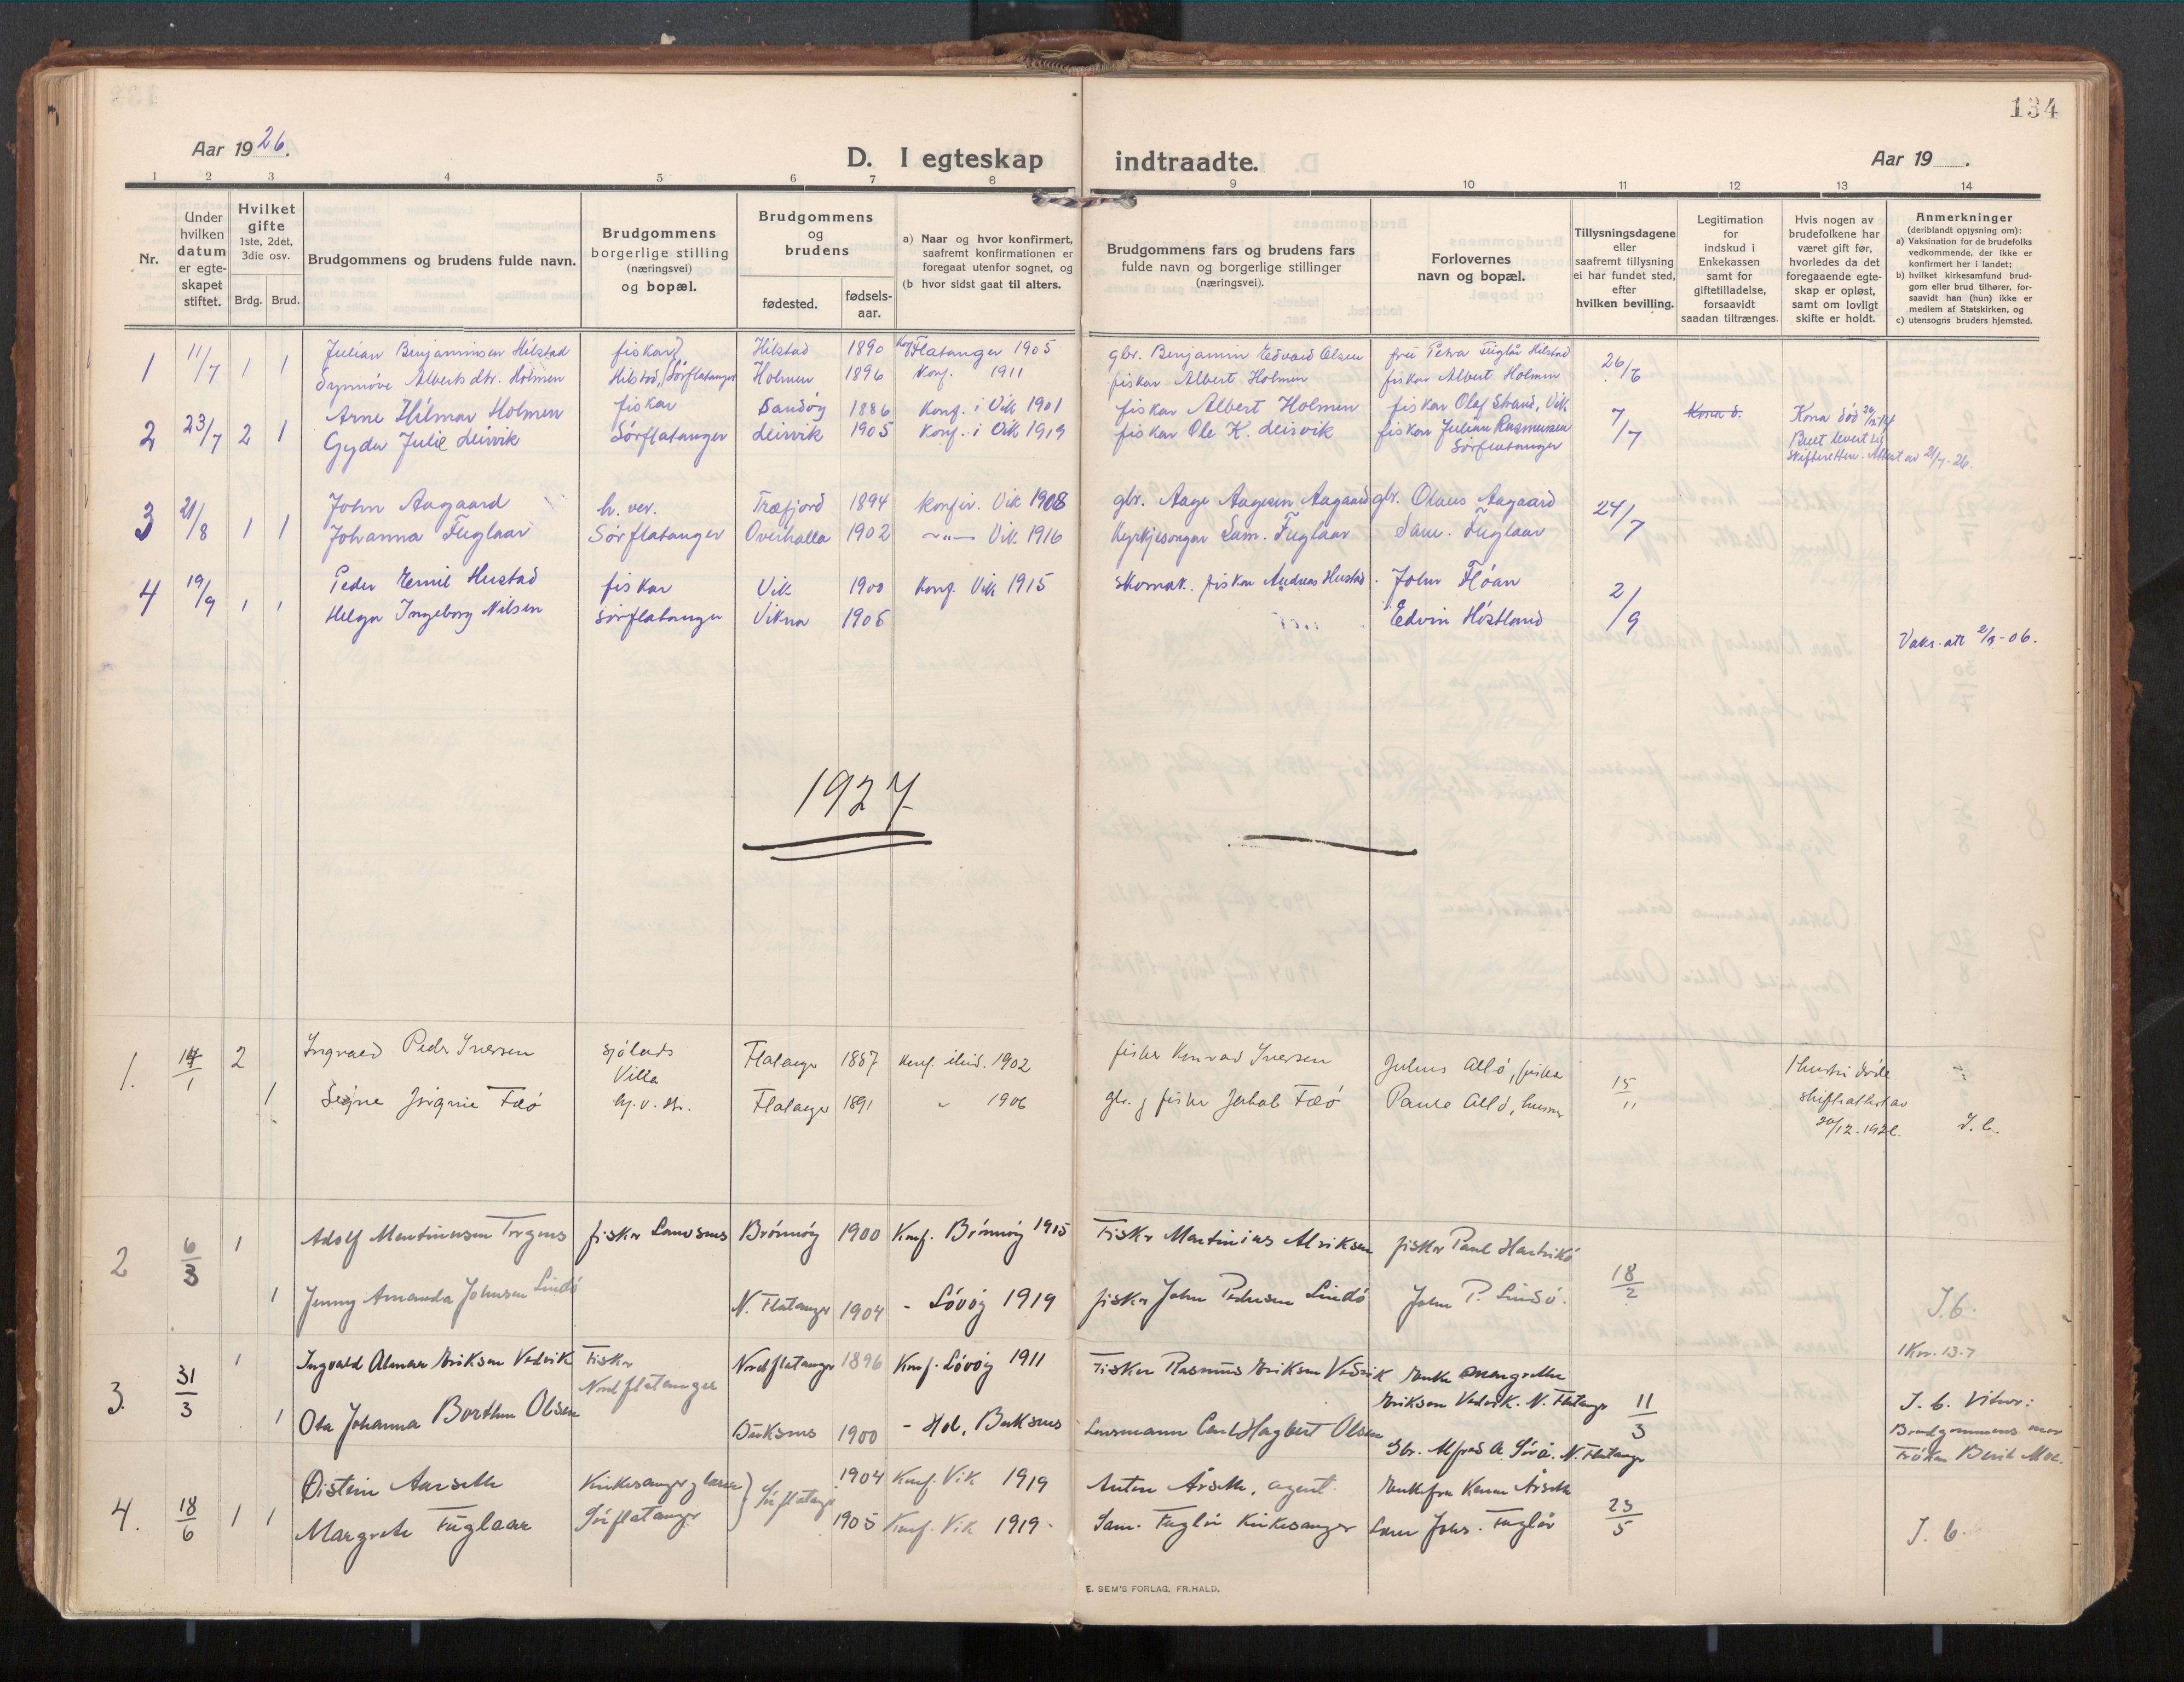 134
Aar 1926.
D. I egteskap indtraadte.
Aar 19 .
1 2 3 4 5 6 7 8 9 10 11 12 13 14
Nr.
Under hvilken datum er egte-skapet stiftet.
Hvilket gifte 1ste, 2det, 3die osv.
Brdg. Brud.
Brudgommens og brudens fulde navn.
Brudgommens borgerlige stilling (næringsvei) og bopæl.
Brudgommens og brudens
fødested.
fødsels-aar.
a) Naar og hvor konfirmert, saafremt konfirmationen er foregaat utenfor sognet, og
(b hvor sidst gaat til alters.
Brudgommens fars og brudens fars fulde navn og borgerlige stillinger (næringsvei).
Forlovernes navn og bopæl.
Tillysningsdagene eller saafremt tillysning ei har fundet sted, efter hvilken bevilling.
Legitimation for indskud i Enkekassen samt for giftetilladelse, forsaavidt saadan tiltrænges.
Hvis nogen av brudefolkene har været gift før, hvorledes da det foregaaende egte-skap er opløst, samt om lovligt skifte er holdt.
Anmerkninger
(deriblandt opjysning om):
a) Vaksination for de brudefolks vedkommende, der ikke er konfirmert her i landet;
b) hvilket kirkesamfund brud-gom eller brud tilhører, for-saavidt han (hun) ikke er medlem af Statskirken, og
c) utensogns bruders hjemsted.
1 11/7 1 1 Julian Benjaminsen Hilstad fiskar Hilstad 1890 Konf Flatanger 1905 gbr. Benjamin Edvard Olsen fru Petra Fuglår Hilstad 26/6
Synnöve Albertsdtr. Holmen Hilstad, Sörflatanger Holmen 1896 Konf. 1911 fiskar Albert Holmen fiskar Albert Holmen
2 23/7 2 1 Arne Hilmar Holmen fiskar Sandöy 1886 Konf. i Vik 1901 fiskar Albert Holmen fiskar Olaf Strand, Vik 7/7 Kona d. Kona död
Gyda Julie Leirvik Sörflatanger Leirvik 1905 Konf. i Vik 1919 fiskar Ole K. Leirvik fiskar Julian Rasmussen Buet levert
Sörflatanger Skifteretten. Attest av 21/7-26.
3 21/8 1 1 John Aagaard h. ver. Træfjord 1894 Konfir. Vik 1908 gbr. Aage Aagesen Aagaard gbr. Olaus Aagaard 24/7
Johanna Fuglaar Sörflatanger Overhalla 1902 —"— Vik 1916 Kyrkjesongar Sam. Fuglaar Sam. Fuglaar
4 19/9 1 1 Peder Emil Hustad fiskar Vik 1900 Konf. Vik 1915 Skomak. fiskar Andreas Hustad. John Flöan 2/9
Helga Ingeborg Nilsen Sörflatanger Vikna 1906 Edvin Höstland
Vaks. att 2/9-06.
1927
1. 14/1 2 Ingvald Peder Iversen Flatanger 1887 Konf. 1902 fisker Konrad Iversen Julius Allö, fisker 15/11 Hustru döde
Villa
1 Signe Flatanger 1891 " 1906 gbr. og fisker Jakob Faö Paule Allö, skifteattest av
J. b.
2 6/3 1 Adolf Martinusen Torgnes fisker Brönnöy 1900 Konf. Brönnöy 1915 Fisker Martinius fisker Paul
1 Jenny Amanda Johnsen Lindö N. Flatanger 1904 - Lövöy 1919 fisker John Pedersen Lindö John P. Lindö. 18/2 J. b.
3. 31/3 1 Ingvald Almar Eriksen Vedvik Fisker Nordflatanger 1896 Konf. Lövöy 1911 Fisker Rasmus Eriksen Vedvik Enke Margrethe 1 Kor. 13-7
Nordflatanger
Eriksen Vedvik. N. Flatanger 11/3 J. b. Vitner:
1 Ola Johanna Borthen Olsen Buksnes 1900 - Hol, Buksnes Lensmann Carl Hagbert Olsen Brudgommens mor
Gbr. Alfred A. N. Flatanger Fröken Berit Moe.
4. 18/6 1 1 Øistein Aarseth Kirkesanger Sörflatanger 1904 Konf. Vik 1919 Anton Årseth, agent. Enkefru Årseth 23/5
Margrete Fuglaar Sörflatanger 1905 Konf. Vik 1919. Sam. Fuglår Kirkesanger Johs. Fuglår J. b.
E. SEM'S FORLAG, FR.HALD.